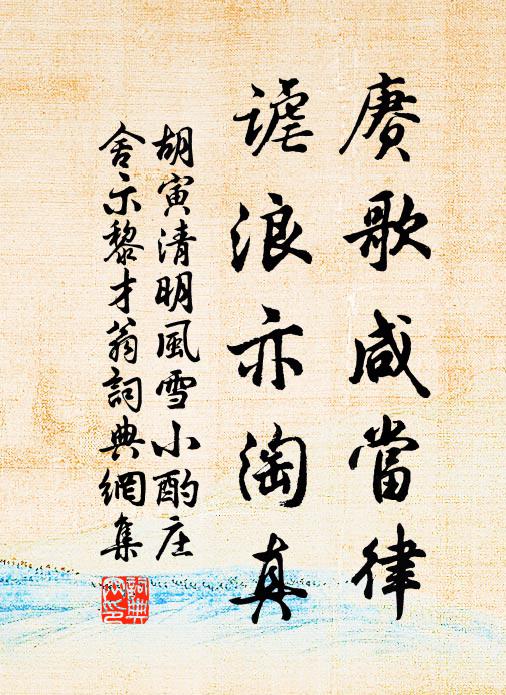 赓歌咸當律
謔浪亦淘真
胡寅清明風雪小酌庄
舍示黎才翁詞典網集